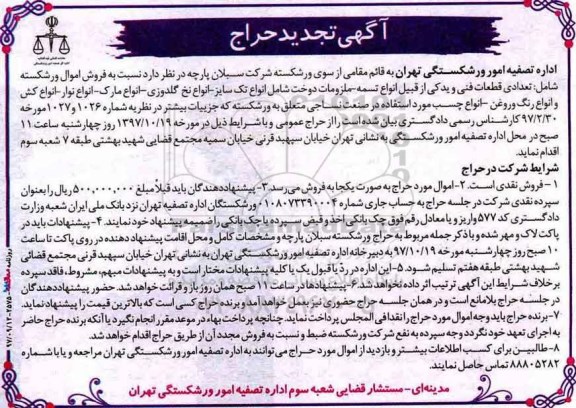 آگهی تجدید حراج
اداره تصفیه امور ورشکستگی تهران به قائم مقامی از سوی ورشکسته شرکت سبلان پارچه در نظر دارد نسبت به فروش اموال ورشکسته
شامل: تعدادی قطعات فنی و یدکی از قبیل انواع تسمه-ملزومات دوخت شامل انواع تک سایز-انواع نخ گلدوزی-انواع مارک-انواع نوار-انواع کش
و انواع رنگ و روغن -انواع چسب مورد استفاده در صنعت نساجی متعلق به ورشکسته که جزییات بیشتر در نظریه شماره ۱۰۲۶ و ۱۰۲۷ مورخه
۹۷/۲/۳۰ کارشناس رسمی دادگستری بیان شده است را از حراج عمومی و با شرایط ذیل در مورخه ۱۳۹۷/۱۰/۱۹ روز چهارشنبه ساعت ۱۱
صبح در محل اداره تصفیه امور ورشکستگی به نشانی تهران خیابان سپهبد قرنی خیابان سمیه مجتمع قضایی شهید بهشتی طبقه ۷ شعبه سوم
اقدام نماید.
شرایط شرکت در حراج
۱- فروش نقدی است. ۲-اموال مورد حراج به صورت یکجا به فروش می رسد. ۳-پیشنهاددهندگان باید قبلاً مبلغ ۵۰۰,۰۰۰,۰۰۰ ریال را بعنوان
سپرده نقدی شرکت در جلسه حراج به حساب جاری شماره ۱۰۸۰۷۳۳۹۰۰۰۴ بستانکاران اداره تصفیه تهران نزد بانک ملی ایران شعبه وزارت
دادگستری کد ۵۷۷ واریز و یا معادل رقم فوق چک بانکی اخذ و فیش سپرده یا چک بانکی را ضمیمه پیشنهاد خود نمایند. ۴- پیشنهادات باید در
پاکت لاک و مهر شده و با ذکر جمله مربوط به حراج ورشکسته سبلان پارچه و مشخصات کامل و محل اقامت پیشنهاد دهنده در روی پاکت تا ساعت
۱۰ صبح روز چهارشنبه مورخه ۹۷/۱۰/۱۹ به دبیرخانه اداره تصفیه امور ورشکستگی تهران به نشانی تهران خیابان سپهبد قرنی مجتمع قضائی
شهید بهشتی طبقه هفتم تسلیم شود. ۵-این اداره در رد یا قبول یک یا کلیه پیشنهادات مختار است و به پیشنهادات مبهم، مشروط، فاقد سپرده
برخلاف شرایط این آگهی ترتیب اثر داده نخواهد شد. ۶-پیشنهادها در ساعت ۱۱ صبح همان روز باز و قرائت خواهد شد. حضور پیشنهاددهندگان
در جلسه حراج بلامانع است و در همان جلسه حراج حضوری نیز بعمل خواهد آمد و برنده حراج کسی است که بالاترین قیمت را پیشنهاد نماید.
۷-برنده حراج باید وجه اموال مورد حراج را نقدا فی المجلس پرداخت نماید. چنانچه پرداخت بهاء در موعد مقرر انجام نگیرد یا آنکه برنده حراج حاضر
به اجرای تعهد خود نگردد وجه سپرده به نفع شرکت ورشکسته ضبط و نسبت به فروش مجدد آن از طریق حراج اقدام خواهد شد.
۸-طالبین برای کسب اطلاعات بیشتر و بازدید از اموال مورد حراج می توانند به اداره تصفیه امور ورشکستگی تهران مراجعه و یا با شماره
۸۸۸۰۵۲۸۲ تماس حاصل نمایند.
مدینه‌ای-مستشار قضایی شعبه سوم اداره تصفیه امور ورشکستگی تهران